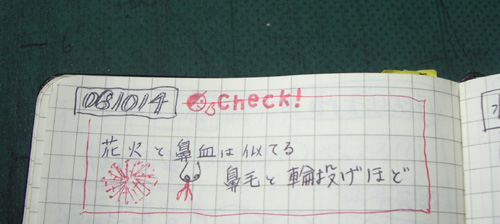 061014 Check!
花火と鼻血は似てる
鼻毛と輪投げほど